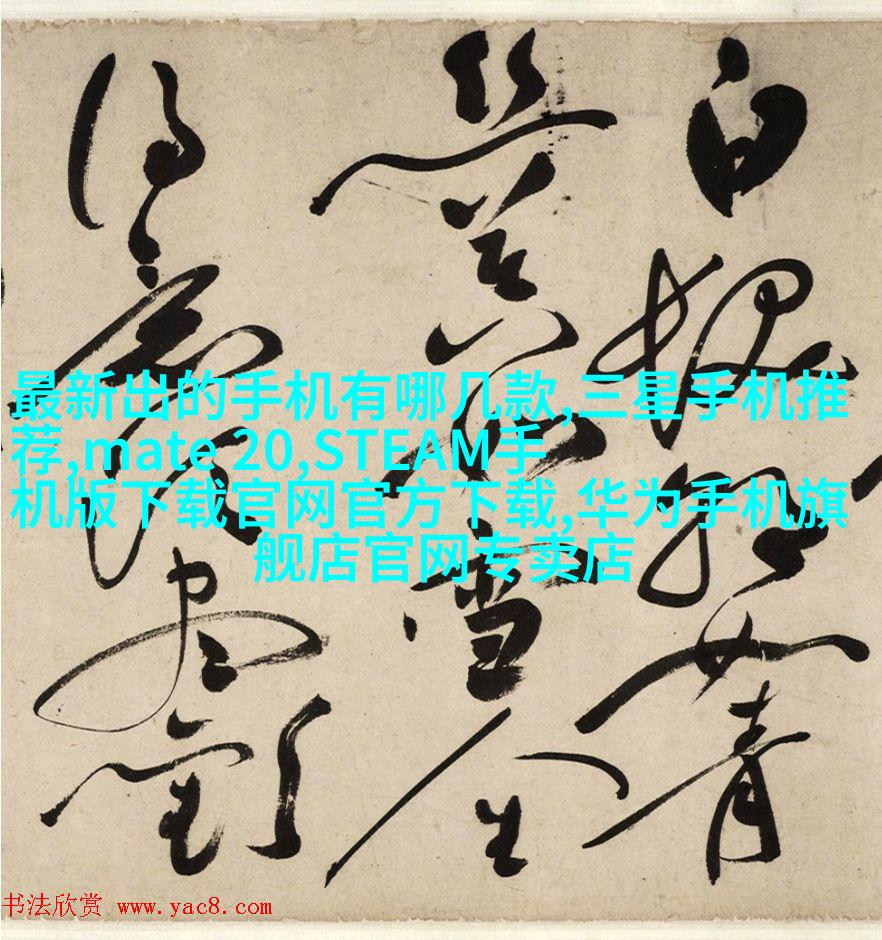 白髮朝如青
絲暮成雪人生
得意須盡歡
最新出的手机有哪几款,三星手机推
荐,mate 20,STEAM手
机版下载官网官方下载,华为手机旗
舰店官网专卖店
书法欣赏 www.yac8.com